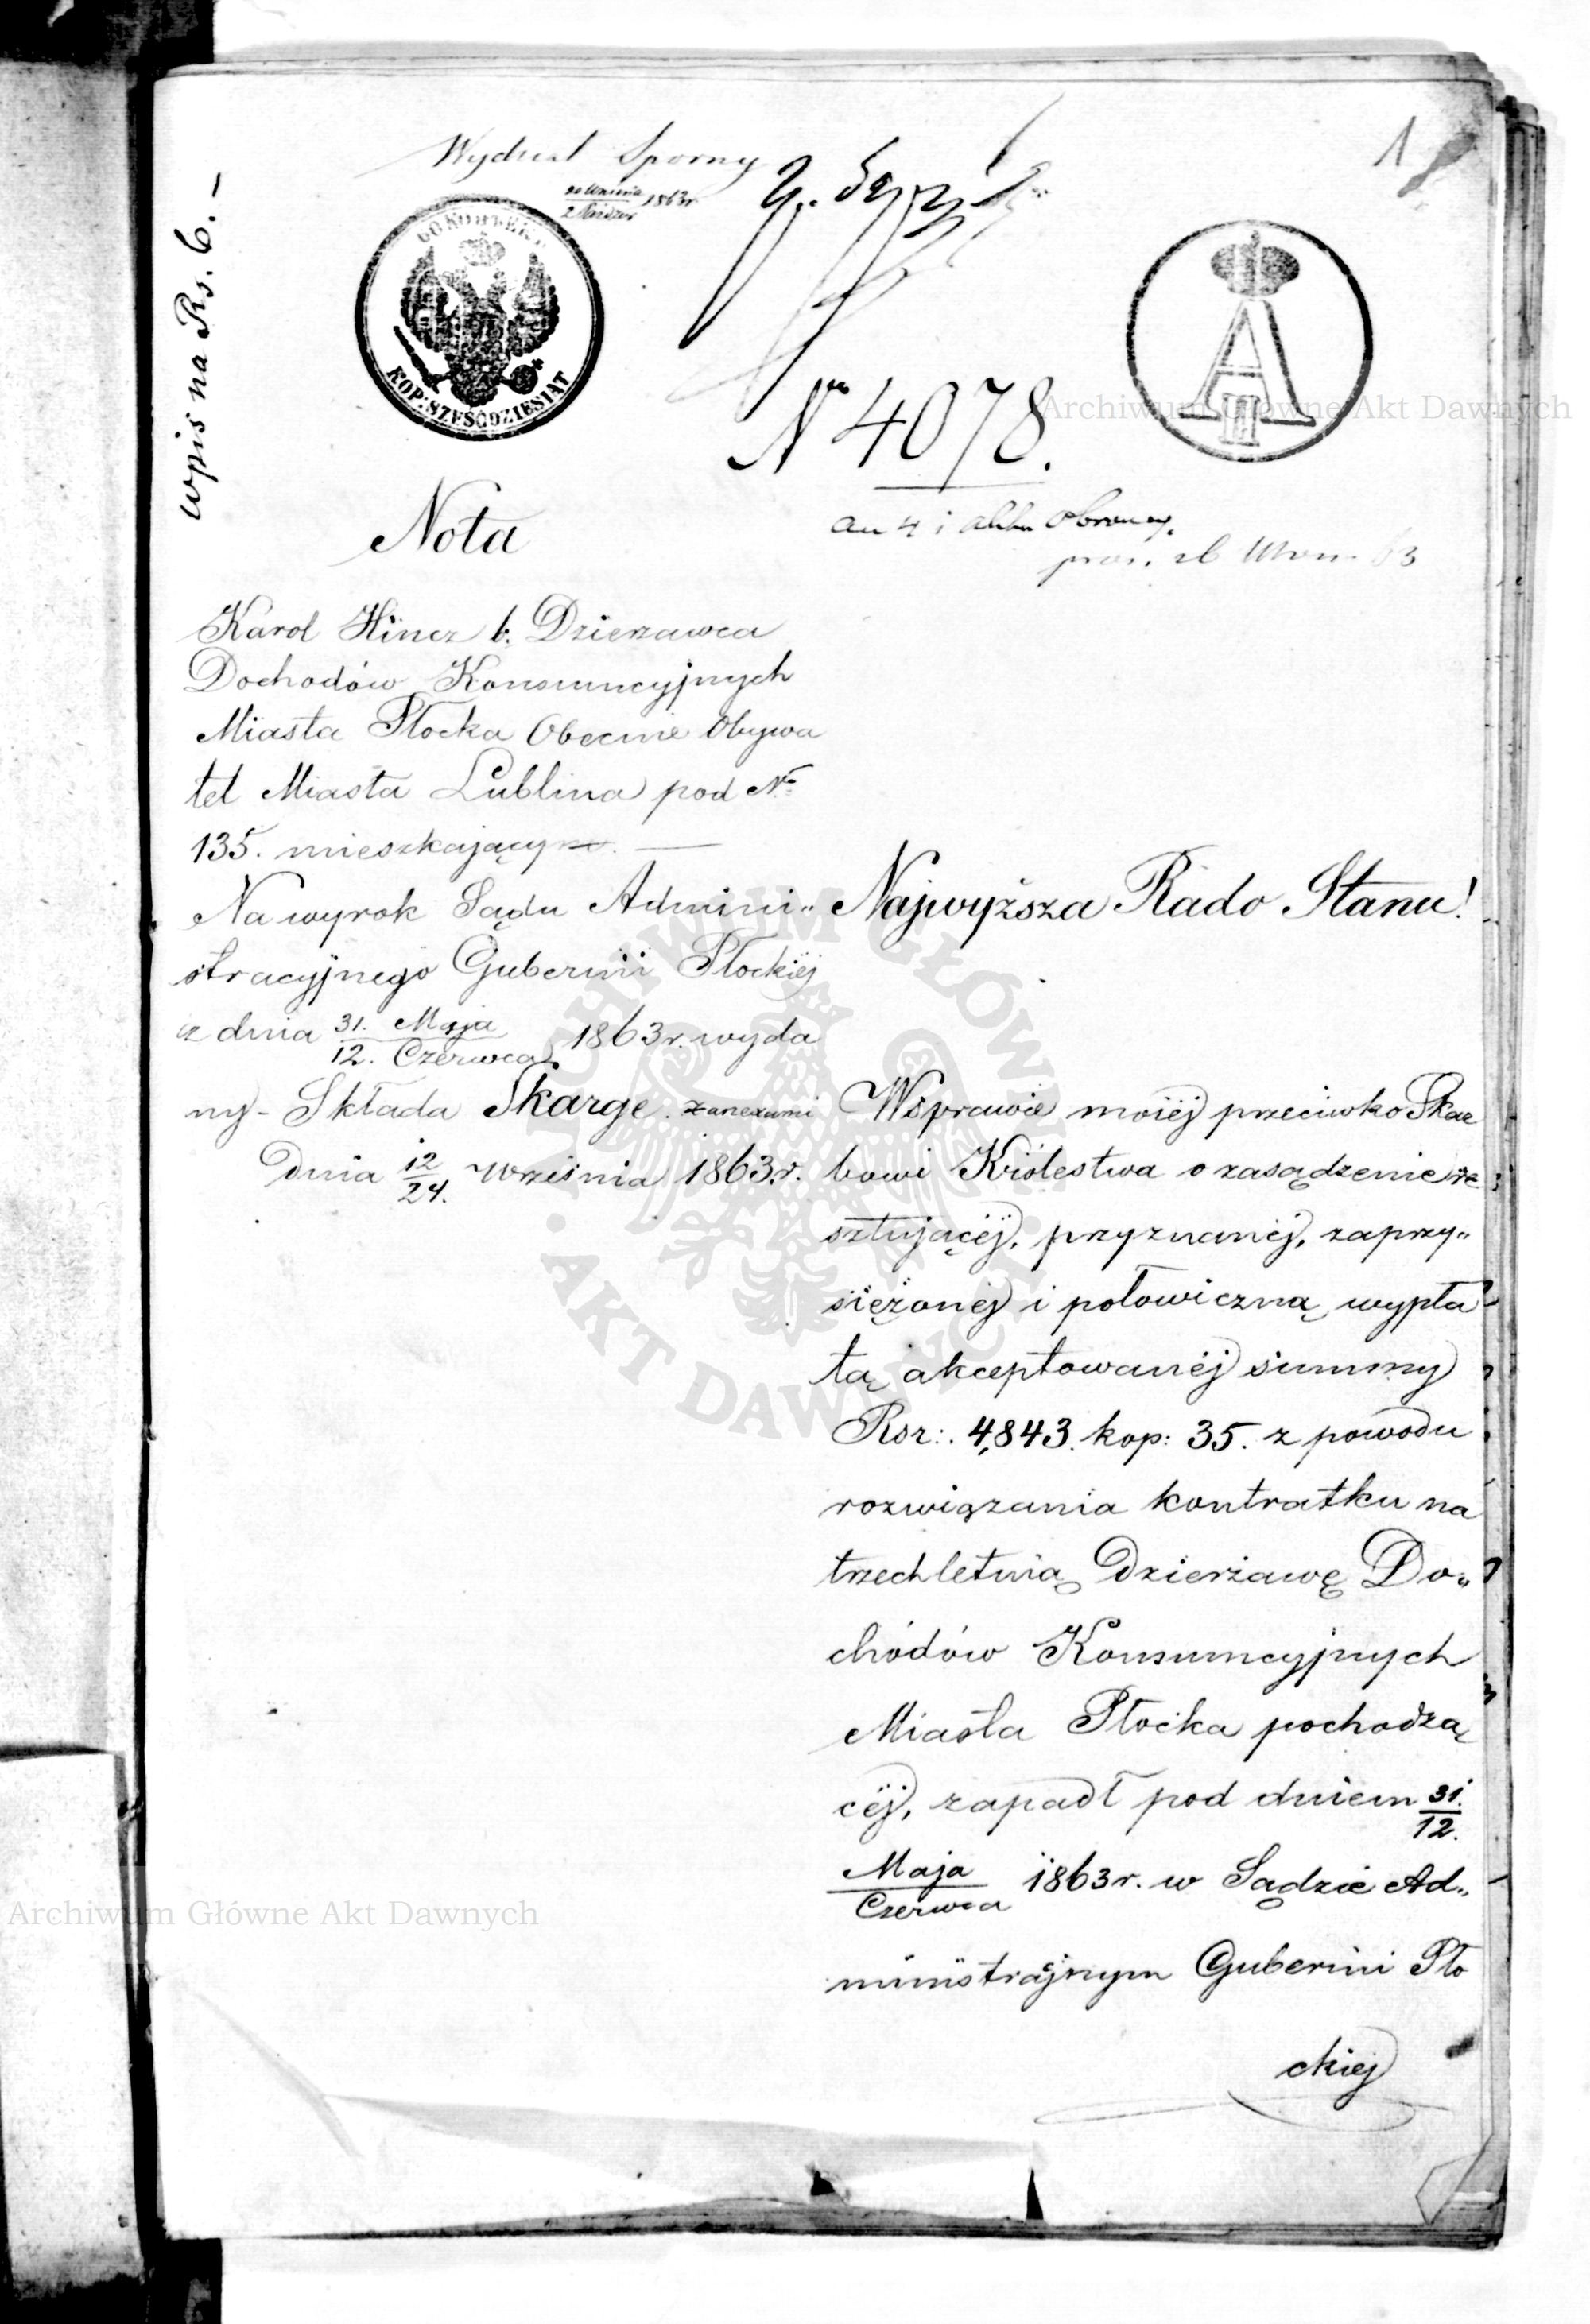 Wydział Sporny
1863r
1
wpis na Rs. 6. –
KOP: SZEŚĆDZIESIĄT
A
II
Nr 4078.
Archiwum Główne Akt Dawnych
Nota
an 4 i
Karol Hincz b. Dzierzawca
Dochodów Konsumcyjnych
Miasta Płocka Obecnie Obywa
tel Miasta Lublina pod No
135. mieszkający
Na wyrok Sądu Admini„
stracyjnego Gubernii Płockiej
z dnia 31. Maja / 12. Czerwca 1863r. wyda
ny – Składa Skargę z anexami
Dnia 12/24. Września 1863.r.
Najwyższa Rado Stanu!
W sprawie mojéj przeciwko Skar
bowi Królestwa o zasądzenie re
sztującéj, przyznanéj, zaprzy„
siężonéj i połowiczną wypła
tą akceptowanéj summy
Rsr: 4,843. kop: 35. z powodu
rozwiązania kontratku na
trzechletnią Dzierżawę Do„
chodów Konsumcyjnych
Miasta Płocka pochodzą
céj, zapadł pod dniem 31./12.
Maja/Czerwca 1863r. w Sądzie Ad„
ministrajnym Gubernii Pło
ckiej
ARCHIWUM GŁÓWNE
· AKT DAWNYCH ·
Archiwum Główne Akt Dawnych